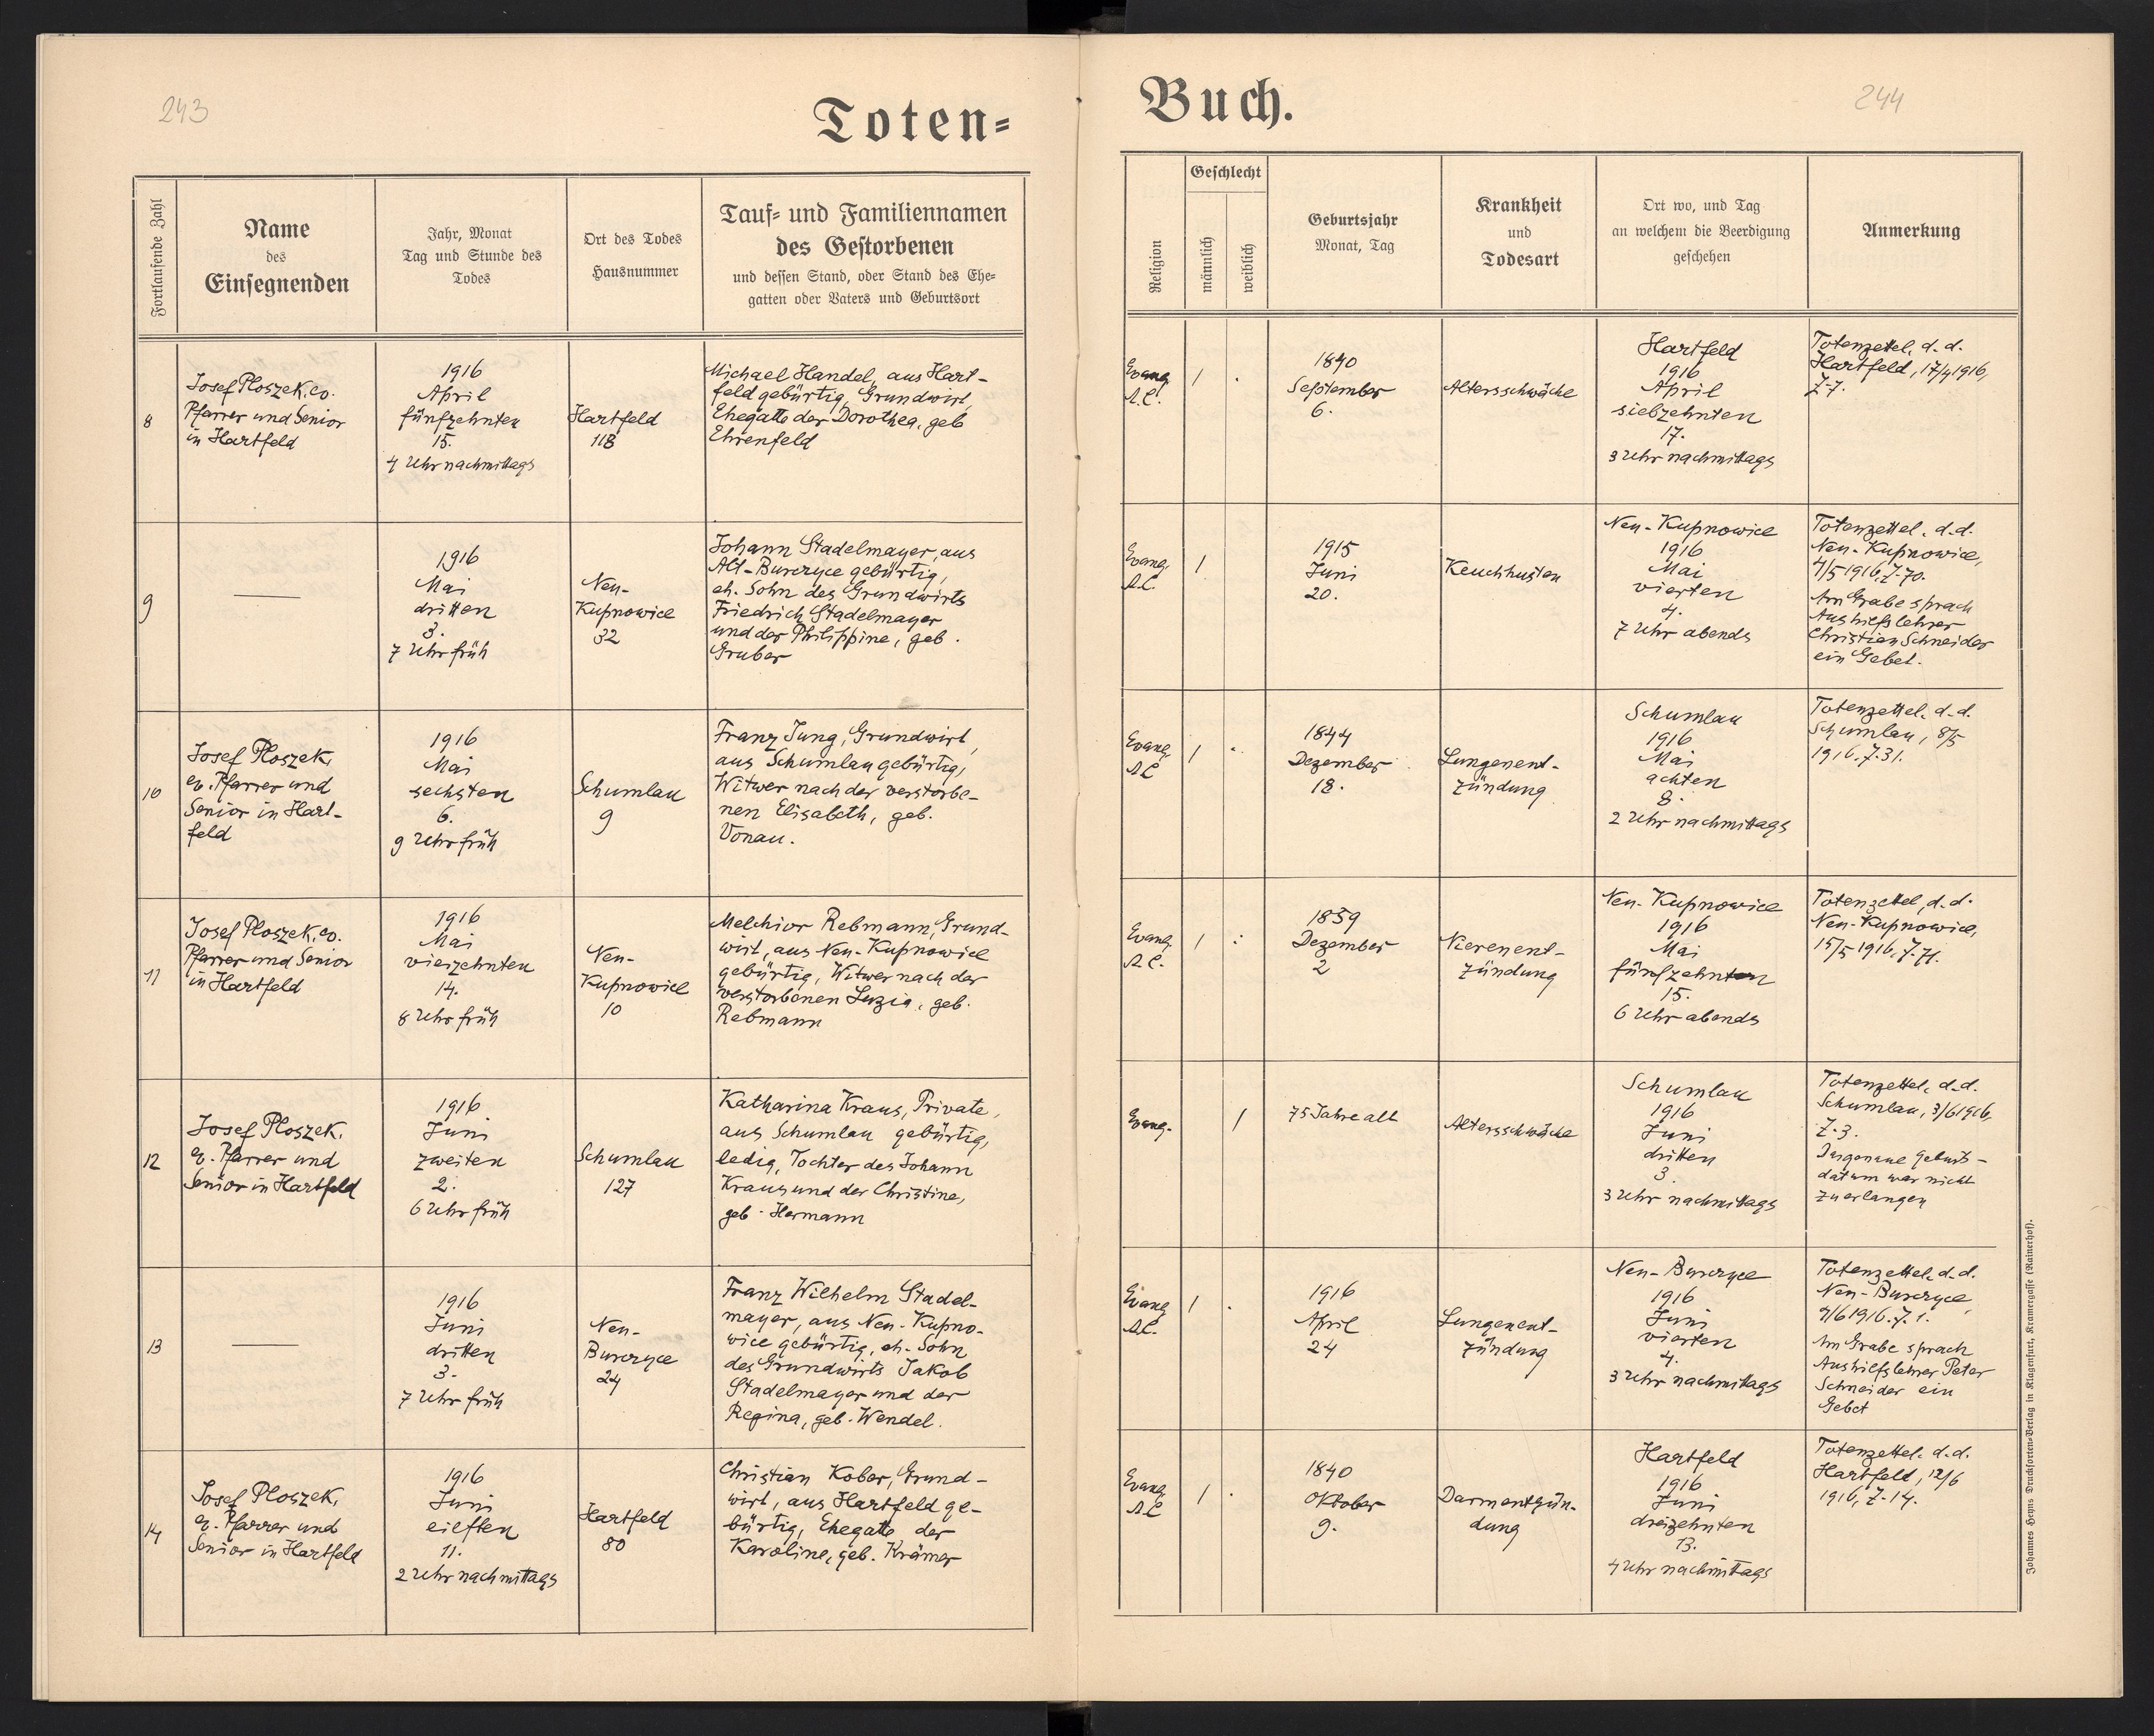 243
Toten=
Fortlaufende Zahl
Name
des
Einsegnenden
Jahr, Monat
Tag und Stunde des
Todes
Ort des Todes
Hausnummer
Tauf= und Familiennamen
des Gestorbenen
und dessen Stand, oder Stand des Ehe=
gatten oder Vaters und Geburtsort
8
Josef Ploszek, ev.
Pfarrer und Senior
in Hartfeld
1916
April
fünfzehnten
15.
4 Uhr nachmittags
Hartfeld
118
Michael Handel, aus Hart-
feld gebürtig, Grundwirt,
Ehegatte der Dorothea, geb
Ehrenfeld
9
1916
Mai
dritten
3.
7 Uhr früh
Neu-
Kupnowice
32
Johann Stadelmayer, aus
Alt-Burczyce gebürtig,
eh. Sohn des Grundwirts
Friedrich Stadelmayer
und der Philippine, geb.
Gruber
10
Josef Ploszek,
ev. Pfarrer und
Senior in Hart-
feld
1916
Mai
sechsten
6.
9 Uhr früh
Schumlau
9
Franz Jung, Grundwirt,
aus Schumlau gebürtig,
Witwer nach der verstorbe-
nen Elisabeth, geb.
Vonau.
11
Josef Ploszek, ev.
Pfarrer und Senior
in Hartfeld
1916
Mai
vierzehnten
14.
8 Uhr früh
Neu-
Kupnowice
10
Melchior Rebmann, Grund-
wirt, aus Neu-Kupnowice
gebürtig, Witwer nach der
verstorbenen Luzia, geb.
Rebmann
12
Josef Ploszek,
ev. Pfarrer und
Senior in Hartfeld
1916
Juni
zweiten
2.
6 Uhr früh
Schumlau
127
Katharina Kraus, Private,
aus Schumlau gebürtig,
ledig, Tochter des Johann
Kraus und der Christine,
geb. Hermann
13
1916
Juni
dritten
3.
7 Uhr früh
Neu-
Burczyce
24
Franz Wilhelm Stadel-
mayer, aus Neu-Kupno-
wice gebürtig, eh. Sohn
des Grundwirts Jakob
Stadelmayer und der
Regina, geb. Wendel.
14
Josef Ploszek,
ev. Pfarrer und
Senior in Hartfeld
1916
Juni
eilften
11.
2 Uhr nachmittags
Hartfeld
80
Christian Kober, Grund-
wirt, aus Hartfeld ge-
bürtig, Ehegatte der
Karoline, geb. Krämer
Buch.
244
Religion
Geschlecht
männlich
weiblich
Geburtsjahr
Monat, Tag
Krankheit
und
Todesart
Ort wo, und Tag
an welchem die Beerdigung
geschehen
Anmerkung
Evang.
A.C.
1
1840
September
6.
Altersschwäche
Hartfeld
1916
April
siebzehnten
17.
3 Uhr nachmittags
Totenzettel, d. d.
Hartfeld, 17/4 1916,
Z. 7.
Evang.
A.C.
1
1915
Juni
20.
Keuchhusten
Neu-Kupnowice
1916
Mai
vierten
4.
7 Uhr abends
Totenzettel. d.d.
Neu-Kupnowice,
4/5 1916, Z. 70.
Am Grabe sprach
Aushilfslehrer
Christian Schneider
ein Gebet.
Evang.
A.C
1
1844
Dezember
18.
Lungenent-
zündung
Schumlau
1916
Mai
achten
8.
2 Uhr nachmittags
Totenzettel. d.d.
Schumlau, 8/5
1916. Z. 31.
Evang.
A.C.
1
1859
Dezember
2
Nierenent-
zündung
Neu-Kupnowice
1916
Mai
fünfzehnten
15.
6 Uhr abends
Totenzettel, d.d.
Neu-Kupnowice,
15/5 1916. Z. 71.
Evang.
1
75 Jahre alt
Altersschwäche
Schumlau
1916
Juni
dritten
3.
3 Uhr nachmittags
Totenzettel. d.d.
Schumlau, 3/6 1916,
Z. 3.
Das genaue Geburts-
datum war nicht
zu erlangen
Evang
A.C.
1
1916
April
24
Lungenent-
zündung
Neu-Burczyce
1916
Juni
vierten
4.
3 Uhr nachmittags
Totenzettel. d.d.
Neu-Burczyce,
4/6 1916. Z. 1.
Am Grabe sprach
Aushilfslehrer Peter
Schneider ein
Gebet
Evang
A.C
1
1840
Oktober
9.
Darmentzün-
dung
Hartfeld
1916
Juni
dreizehnten
13.
4 Uhr nachmittags
Totenzettel. d.d.
Hartfeld, 12/6
1916, Z. 14.
Johannes Heyns Drucksorten=Verlag in Klagenfurt, Kramergasse (Rainerhof).